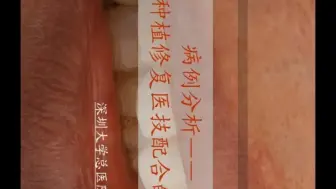 病例分析——
种植修复医技配合的
深圳大学总医院